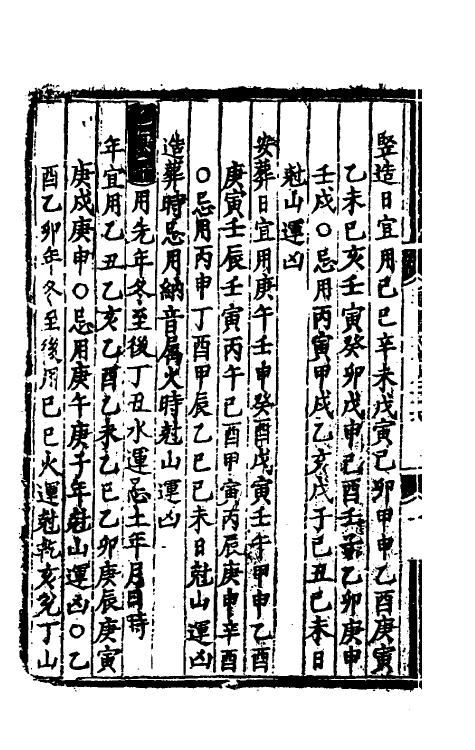 竪造日宜用己巳辛未戊寅己卯甲申乙酉庚寅
乙未己亥壬寅癸卯戊申己酉壬子乙卯庚申
壬戌○忌用丙寅甲戌乙亥戊子己丑己未日
尅山運凶
安葬日宜用庚午壬申癸酉戊寅壬午甲申乙酉
庚寅壬辰壬寅丙午己酉甲寅丙辰庚申辛酉
○忌用丙申丁酉甲辰乙巳己未日尅山運凶
造葬時忌用納音屬火時尅山運凶
用先年冬至後丁丑水運忌土年月日時
年宜用乙丑乙亥乙酉乙未乙巳乙卯庚辰庚寅
庚戌庚申○忌用庚午庚子年尅山運凶○乙
酉乙卯年冬至後用己巳火運尅乾亥兌丁山